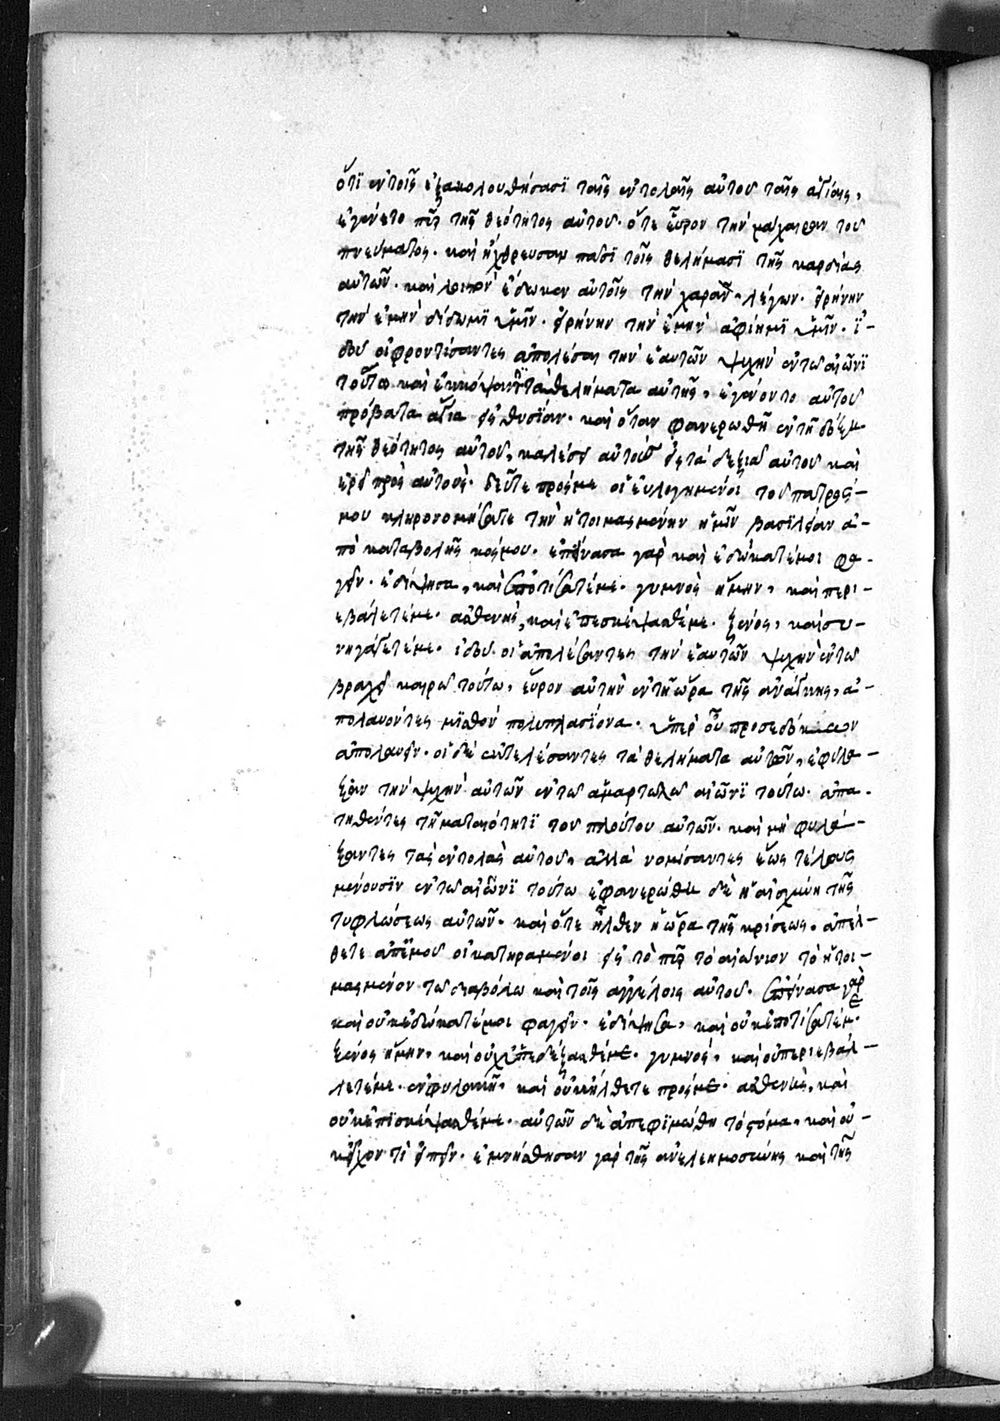 ὅτι ἐν τοῖς ἐξακολουθήσασι ταῖς ἐντολαῖς αὐτοῦ ταῖς ἁγίαις,
ἐγένετο πῦρ τῆς θεότητος αὐτοῦ. ὅτε εὗρον τὴν μάχαιραν τοῦ
πνεύματος. καὶ ἤχθρευσαν πᾶσι τοῖς θελήμασι τῆς καρδίας
αὐτῶν. καὶ λοιπὸν ἔδωκεν αὐτοῖς τὴν χαρὰν λέγων. εἰρήνην
τὴν ἐμὴν δίδωμι ὑμῖν. εἰρήνην τὴν ἐμὴν ἀφίημι ὑμῖν. ἰ-
δοὺ οἱ φροντίσαντες ἀπολέσαι τὴν ἑαυτῶν ψυχὴν ἐν τῷ αἰῶνι
τούτῳ καὶ ἐκκόψαντες τὰ θελήματα αὐτῆς, ἐγένοντο αὐτοῦ
πρόβατα ἅγια εἰς θυσίαν. καὶ ὅταν φανερωθῇ ἐν τῇ δόξῃ
τῆς θεότητος αὐτοῦ, καλέσει αὐτοὺς εἰς τὰ δεξιὰ αὐτοῦ καὶ
ἐρεῖ πρὸς αὐτούς. δεῦτε πρός με οἱ εὐλογημένοι τοῦ πατρός
μου κληρονομήσατε τὴν ἡτοιμασμένην ἡμῖν βασιλείαν ἀ-
πὸ καταβολῆς κόσμου. ἐπείνασα γὰρ καὶ ἐδώκατέ μοι φα-
γεῖν. ἐδίψησα, καὶ ἐποτίσατέ με. γυμνὸς ἤμην, καὶ περι-
εβάλετέ με. ἀσθενής, καὶ ἐπεσκέψασθέ με. ξένος, καὶ συ-
νηγάγετέ με. ἰδοὺ οἱ ἀπολέσαντες τὴν ἑαυτῶν ψυχὴν ἐν τῷ
βραχεῖ καιρῷ τούτῳ, εὗρον αὐτὴν ἐν τῇ ὥρᾳ τῆς ἀνάγκης, ἀ-
πολαυόντες μισθὸν πολυπλασίονα. ὑπὲρ οὗ προσεδόκησαν
ἀπολαυεῖν. οἱ δὲ ἐκτελέσαντες τὰ θελήματα αὐτῶν, ἐφύλα-
ξαν τὴν ψυχὴν αὐτῶν ἐν τῷ ἁμαρτωλῷ αἰῶνι τούτῳ. ἀπα-
τηθέντες τῇ ματαιότητι τοῦ πλούτου αὐτῶν. καὶ μὴ φυλά-
ξαντες τὰς ἐντολὰς αὐτοῦ, ἀλλὰ νομίσαντες ἕως τέλους
μένουσιν ἐν τῷ αἰῶνι τούτῳ ἐφανερώθη δὲ ἡ αἰσχύνη τῆς
τυφλώσεως αὐτῶν. καὶ ὅτε ἦλθεν ἡ ὥρα τῆς κρίσεως. ἀπέλ-
θετε ἀπ' ἐμοῦ οἱ κατηραμένοι εἰς τὸ πῦρ τὸ αἰώνιον τὸ ἡτοι-
μασμένον τῷ διαβόλῳ καὶ τοῖς ἀγγέλοις αὐτοῦ. ἐπείνασα γὰρ
καὶ οὐκ ἐδώκατέ μοι φαγεῖν. ἐδίψησα, καὶ οὐκ ἐποτίσατέ με.
ξένος ἤμην, καὶ οὐχ ὑπεδέξασθέ με. γυμνός, καὶ οὐ περιεβάλ-
λετέ με. ἐν φυλακῇ, καὶ οὐκ ἤλθετε πρός με. ἀσθενής, καὶ
οὐκ ἐπισκέψασθέ με. αὐτῶν δὲ ἀπεφιμώθη τὸ στόμα, καὶ οὐ-
κ εἶχον τί εἰπεῖν. ἐμνήσθησαν γὰρ τῆς ἀνελεημοσύνης καὶ τῆς